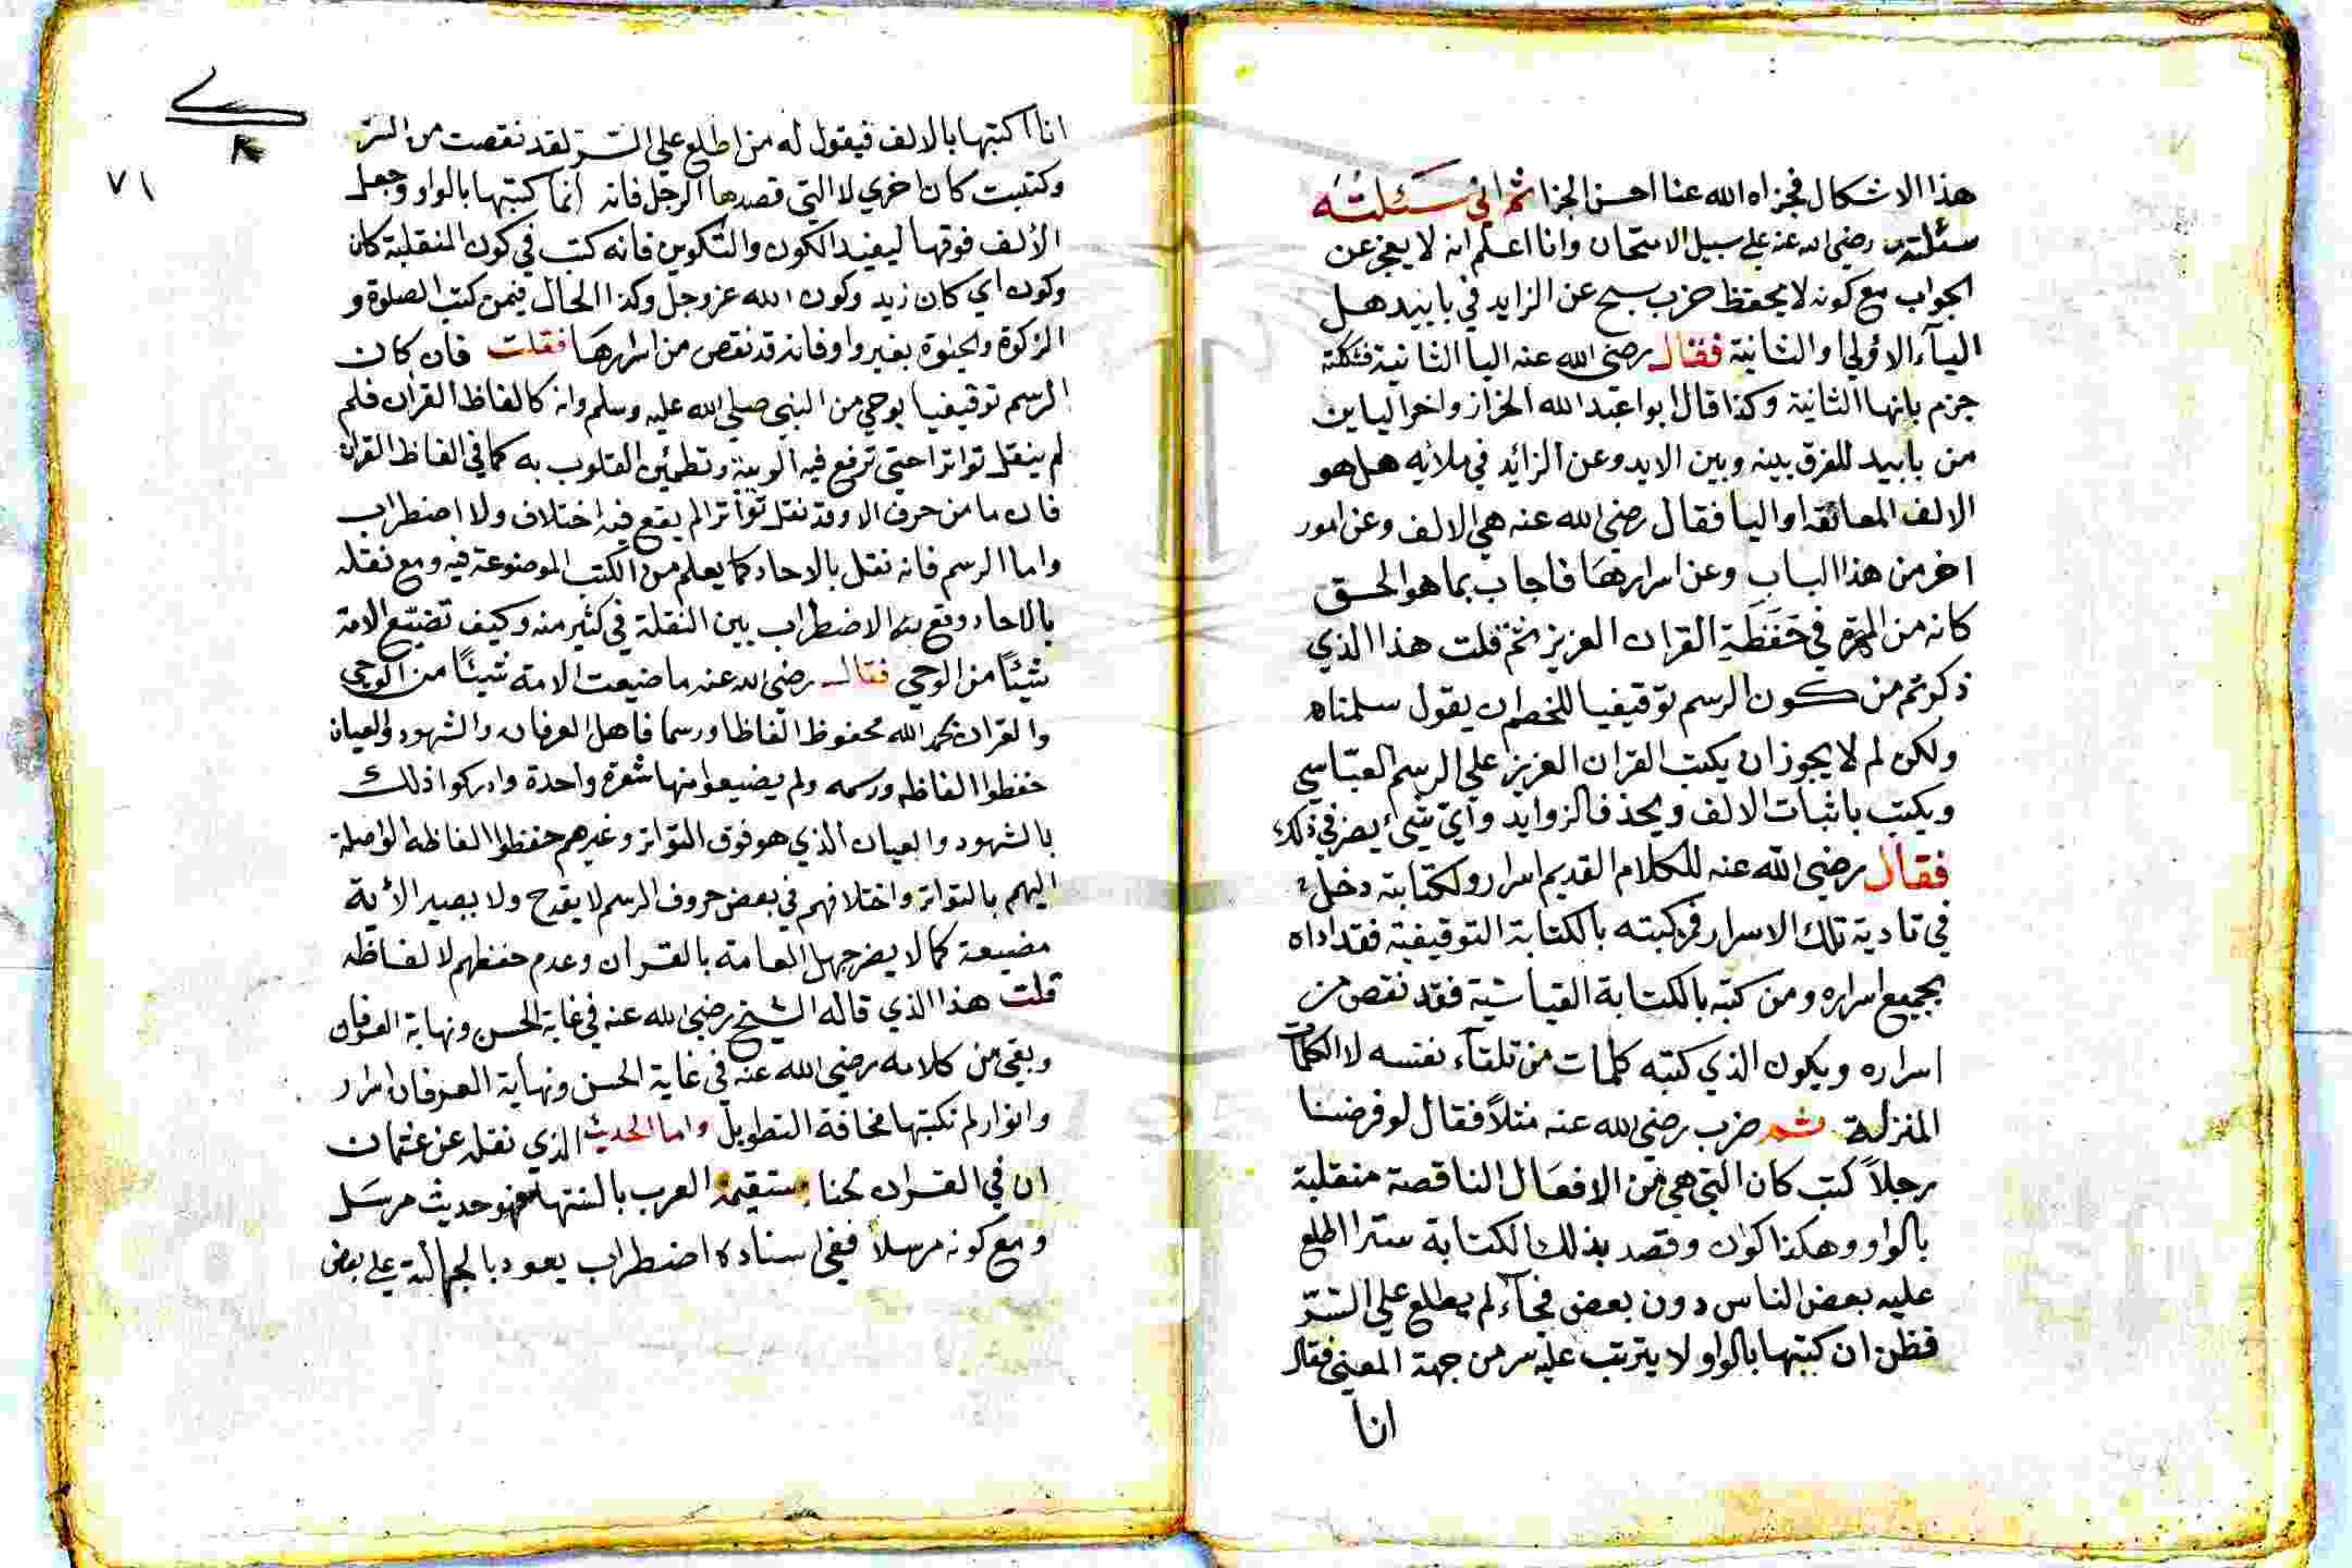 هذا الاشكال فجزاه الله عنا احسن الجزا ثم اني سئلته
سئلته رضي الله عنه على سبيل الامتحان وانا اعلم انه لا يعجز عن
الجواب مع كونه لا يحفظ حزب سبح عن الزايد في باييد هل
اليآء الاولي والثانية فقال رضي الله عنه اليا الثانية
جزم بانها الثانية وكذا قال ابوا عبد الله الخراز واخر الياين
من باييد للفرق بينه وبين الايد وعن الزائد في ملائه هل هو
الالف المعانقه او اليا فقال رضي الله عنه هي الالف وعن امور
اخر من هذا الباب وعن اسرارها فاجاب بما هو الحق
كانه من المهرة في حفظة القران العزيز ثم قلت هذا الذي
ذكرتم من كون الرسم توقيفيا للخصم ان يقول سلمناه
ولكن لم لا يجوز ان يكتب القران العزيز على الرسم العبّاسي
ويكتب باثبات الالف ويحذف الزوايد وايّ شيء يضر في ذلك
فقال رضي الله عنه للكلام القديم اسرار ولكتابة دخل
في تادية تلك الاسرار فمن كتبه بالكتابة التوقيفية فقد اداه
بجميع اسراره ومن كتبه بالكتابة القياسية فقد نقص من
اسراره ويكون الذي كتبه كلمات من تلقآء نفسه لا الكلمات
المنزلة ثم ضرب رضي الله عنه مثلاً فقال لو فرضنا
رجلاً كتب كان التي هي من الافعال الناقصة منقلبة
بالواو وهكذا كوان وقصد بذلك الكتابة سترا اطلع
عليه بعض الناس دون بعض فجآء لم يطلع على السّرّ
فظن ان كتبها بالواو لا يترتب عليه سر من جهة المعنى فقال
انا
٧١
انا اكتبها بالالف فيقول له من اطلع على السّر لقد نقصت من السّر
وكتبت كان اخري لا التي قصدها الرجل فانه انما كتبها بالواو وجعل
الألف فوقها ليفيد الكون والتكوين فانه كتب في كون المنقلبة كان
وكون اي كان زيد وكون الله عز وجل وكذا الحال فيمن كتب الصلوة و
الزكوة والحيوة بغير واو فانه قد نقص من اسرارها فقلت فان كان
الرسم توقيفيا بوحي من النبي صلي الله عليه وسلم وانه كالفاظ القران فلم
لم ينقل تواترا حتي ترفع فيه الريبة وتطمئن القلوب به كما في الفاظ القران
فان ما من حرف الا وقد نقل تواترا لم يقع فيه اختلاف ولا اضطراب
واما الرسم فانه نقل بالاحاد كما يعلم من الكتب الموضوعة فيه ومع نقله
بالاحاد وقع الاضطراب بين النقلة في كثير منه وكيف تضيّع الامة
شيئًا من الوحي فقال رضي الله عنه ما ضيعت الامة شيئًا من الوحي
والقران بحمد الله محفوظ الفاظا ورسما فاهل العرفان والشهود والعيان
حفظوا الفاظه ورسمه ولم يضيعوا منها شعرة واحدة وادركوا ذلك
بالشهود والعيان الذي هو فوق التواتر وغيرهم حفظوا الفاظه الواصلة
اليهم بالتواتر واختلافهم في بعض حروف الرسم لا يقدح ولا يصير الأية
مضيعة كما لا يضر جهل العامة بالقران وعدم حفظهم لالفاظه
قلت هذا الذي قاله الشيخ رضي الله عنه في غاية الحسن ونهاية العرفان
وبقي من كلامه رضي الله عنه في غاية الحسن ونهاية العرفان اسرار
وانوار لم نكتبها مخافة التطويل واما الحديث الذي نقله عن عثمان
ان في القران لحنا ستقيمه العرب بالسنتها فهو حديث مرسل
ومع كونه مرسلاً ففي اسناده اضطراب يعود بالجهالة على بعض